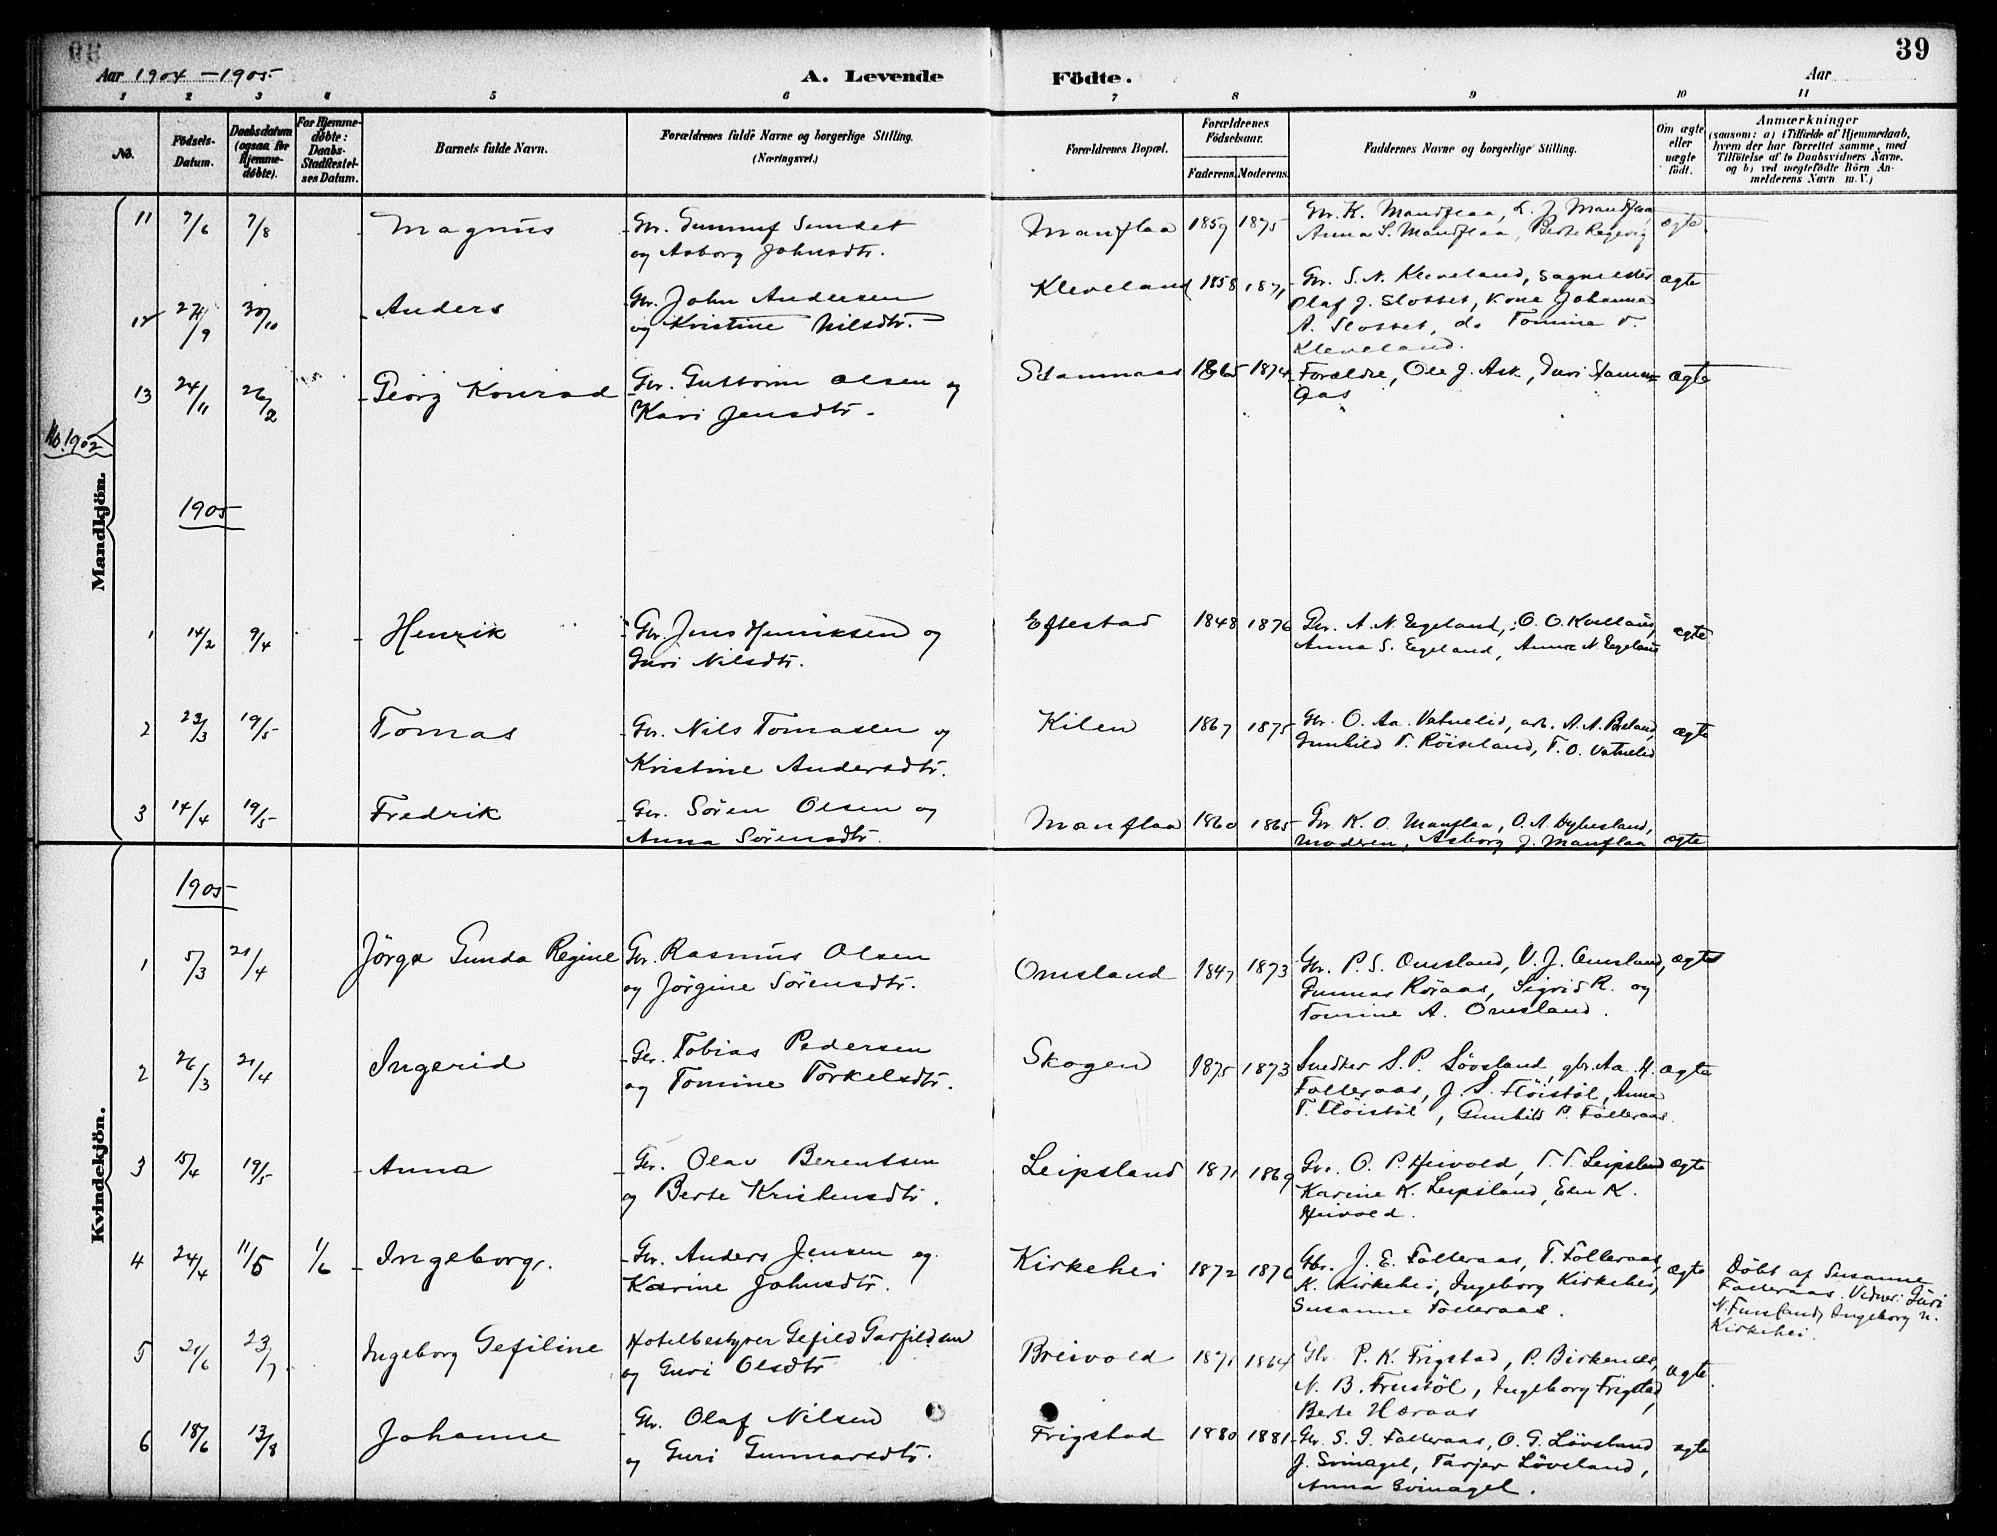 39
Aar 1904 – 1905
A. Levende Födte.
Aar
1 2 3 4 5 6 7 8 9 10 11
No.
Födsels-
Datum.
Daabsdatum
(ogsaa for
Hjemme-
døbte).
For Hjemme-
døbte:
Daabs-
Stadfæstel-
ses Datum.
Barnets fulde Navn.
Forældrenes fulde Navne og borgerlige Stilling.
(Næringsvei.)
Forældrenes Bopæl.
Forældrenes
Födselsaar.
Faderens. Moderens.
Faddernes Navne og borgerlige Stilling.
Om ægte
eller
uægte
födt.
Anmærkninger
(saasom: a) i Tilfælde af Hjemmedaab,
hvem der har forrettet samme, med
Tilföielse af to Daabsvidners Navne.
og b) ved uægtefödte Börn An-
melderens Navn m. V.)
Mandkjön.
11 7/6 7/8 Magnus
Gbr. Gunnuf Sundet
og Asborg Johnsdtr.
Manflaa 1859 1875
Gbr. K. Mandflaa, L. J. Mandflaa,
Anna S. Mandflaa, Berte
ægte
12 24/9 30/10 Anders
Gbr. John Andersen
og Kristine Nilsdtr.
Kleveland 1858 1871
Gbr. S. N. Kleveland,
Olaf J. Slottet, Kone Johanna
A. Slottet, do Tomine T.
Kleveland.
ægte
13 24/11 26/2 Georg Konrad
Gbr. Guttorm Olsen og
Kari Jensdtr.
Stammaas 1865 1874
Forældre, Ole J. Ask, Guri
ægte
No. 1902
1905
1 14/2 9/4 Henrik
Gbr. Jens Henriksen og
Guri Nilsdtr.
Eftestad 1848 1876
Gbr. A. N. Egeland, O. O.
Anna S. Egeland, Anna N. Egeland
ægte
2 23/3 19/5 Tomas
Gbr. Nils Tomassen og
Kristine Andersdtr.
Kilen 1867 1875
Gbr. O. Aa. Vatnelid, arb. A. A.
Gunhild T. Röiseland, T. O. Vatnelid
ægte
3 14/4 19/5 Fredrik
Gbr. Sören Olsen og
Anna Sörensdtr.
Manflaa 1860 1865
Gbr. K. O. Manflaa, O. A. Hybesland,
Moderen, Asborg J. Manflaa
ægte
Kvindekjön.
1905
1 5/3 21/4 Jörga Gunda Regine
Gbr. Rasmus Olsen
og Jörgine Sörensdtr.
Omsland 1847 1873
Gbr. P. S. Omsland, V. J. Omsland,
Gunnar Röraas, Sigrid R. og
Tomine A. Omsland.
ægte
2 26/3 21/4 Ingerid
Gbr. Tobias Pedersen
og Tomine Torkelsdtr.
Skogen 1875 1873
Snedker S. P. Lövsland, gbr. Aa. H.
Folleraas, J. S. Flöistöl, Anna
T. Flöistöl, Gunhild P. Folleraas.
ægte
3 15/4 19/5 Anna
Gbr. Olav Berentsen
og Berte Kristensdtr.
Leipsland 1871 1869
Gbr. O. P. Heivold, T. T. Leipsland
Karine K. Leipsland, Elen K.
Heivold.
ægte
4 24/4 11/5 1/6 Ingeborg.
Gbr. Anders Jensen og
Karine Johnsdtr.
Kirkehei 1872 1876
Gbr. J. E. Folleraas, T. Folleraas,
K. Kirkehei, Ingeborg Kirkehei,
Susanne Folleraas.
ægte
Döbt af Susanne
Folleraas. Vidner: Guri
N. Finsland, Ingeborg N.
Kirkehei.
5 21/6 23/7 Ingeborg Gefiline
Hotelbestyrer Gefild Garfildsen
og Guri Olsdtr
Breivold 1871 1864
Gbr. P. K. Frigstad, P. Birkenes,
N. B. Frustöl, Ingeborg Frigstad,
Berte Heraas
ægte.
6 18/6 13/8 Johanne
Gbr. Olaf Nilsen
og Guri Gunnarsdtr.
Frigstad 1880 1881
Gbr. S. G. Folleraas, O. G. Lövsland
J. Svinagel, Tarjer Lövsland,
Anna Svinagel.
ægte